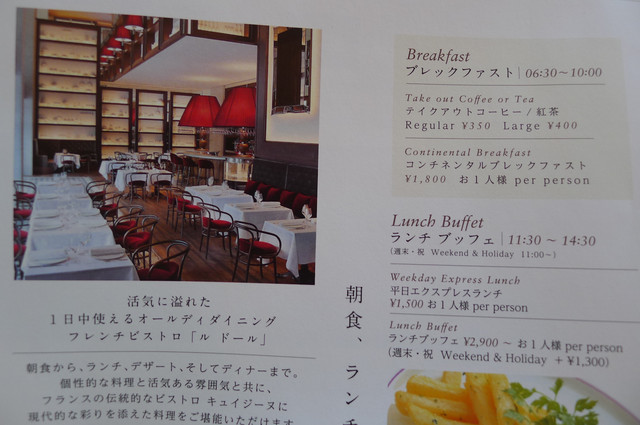 活気に溢れた
1日中使えるオールディダイニング
フレンチビストロ「ル ドール」
朝食から、ランチ、デザート、そしてディナーまで。
個性的な料理と活気ある雰囲気と共に、
フランスの伝統的なビストロ キュイジーヌに
現代的な彩りを添えた料理をご堪能いただけます
朝食、ランチ
Breakfast
ブレックファスト | 06:30〜10:00
Take out Coffee or Tea
テイクアウトコーヒー / 紅茶
Regular ¥350 Large ¥400
Continental Breakfast
コンチネンタルブレックファスト
¥1,800 お1人様 per person
Lunch Buffet
ランチ ブッフェ | 11:30 〜 14:30
(週末・祝 Weekend & Holiday 11:00〜)
Weekday Express Lunch
平日エクスプレスランチ
¥1,500 お1人様 per person
Lunch Buffet
ランチブッフェ ¥2,900 〜 お1人様 per person
(週末・祝 Weekend & Holiday + ¥1,300)